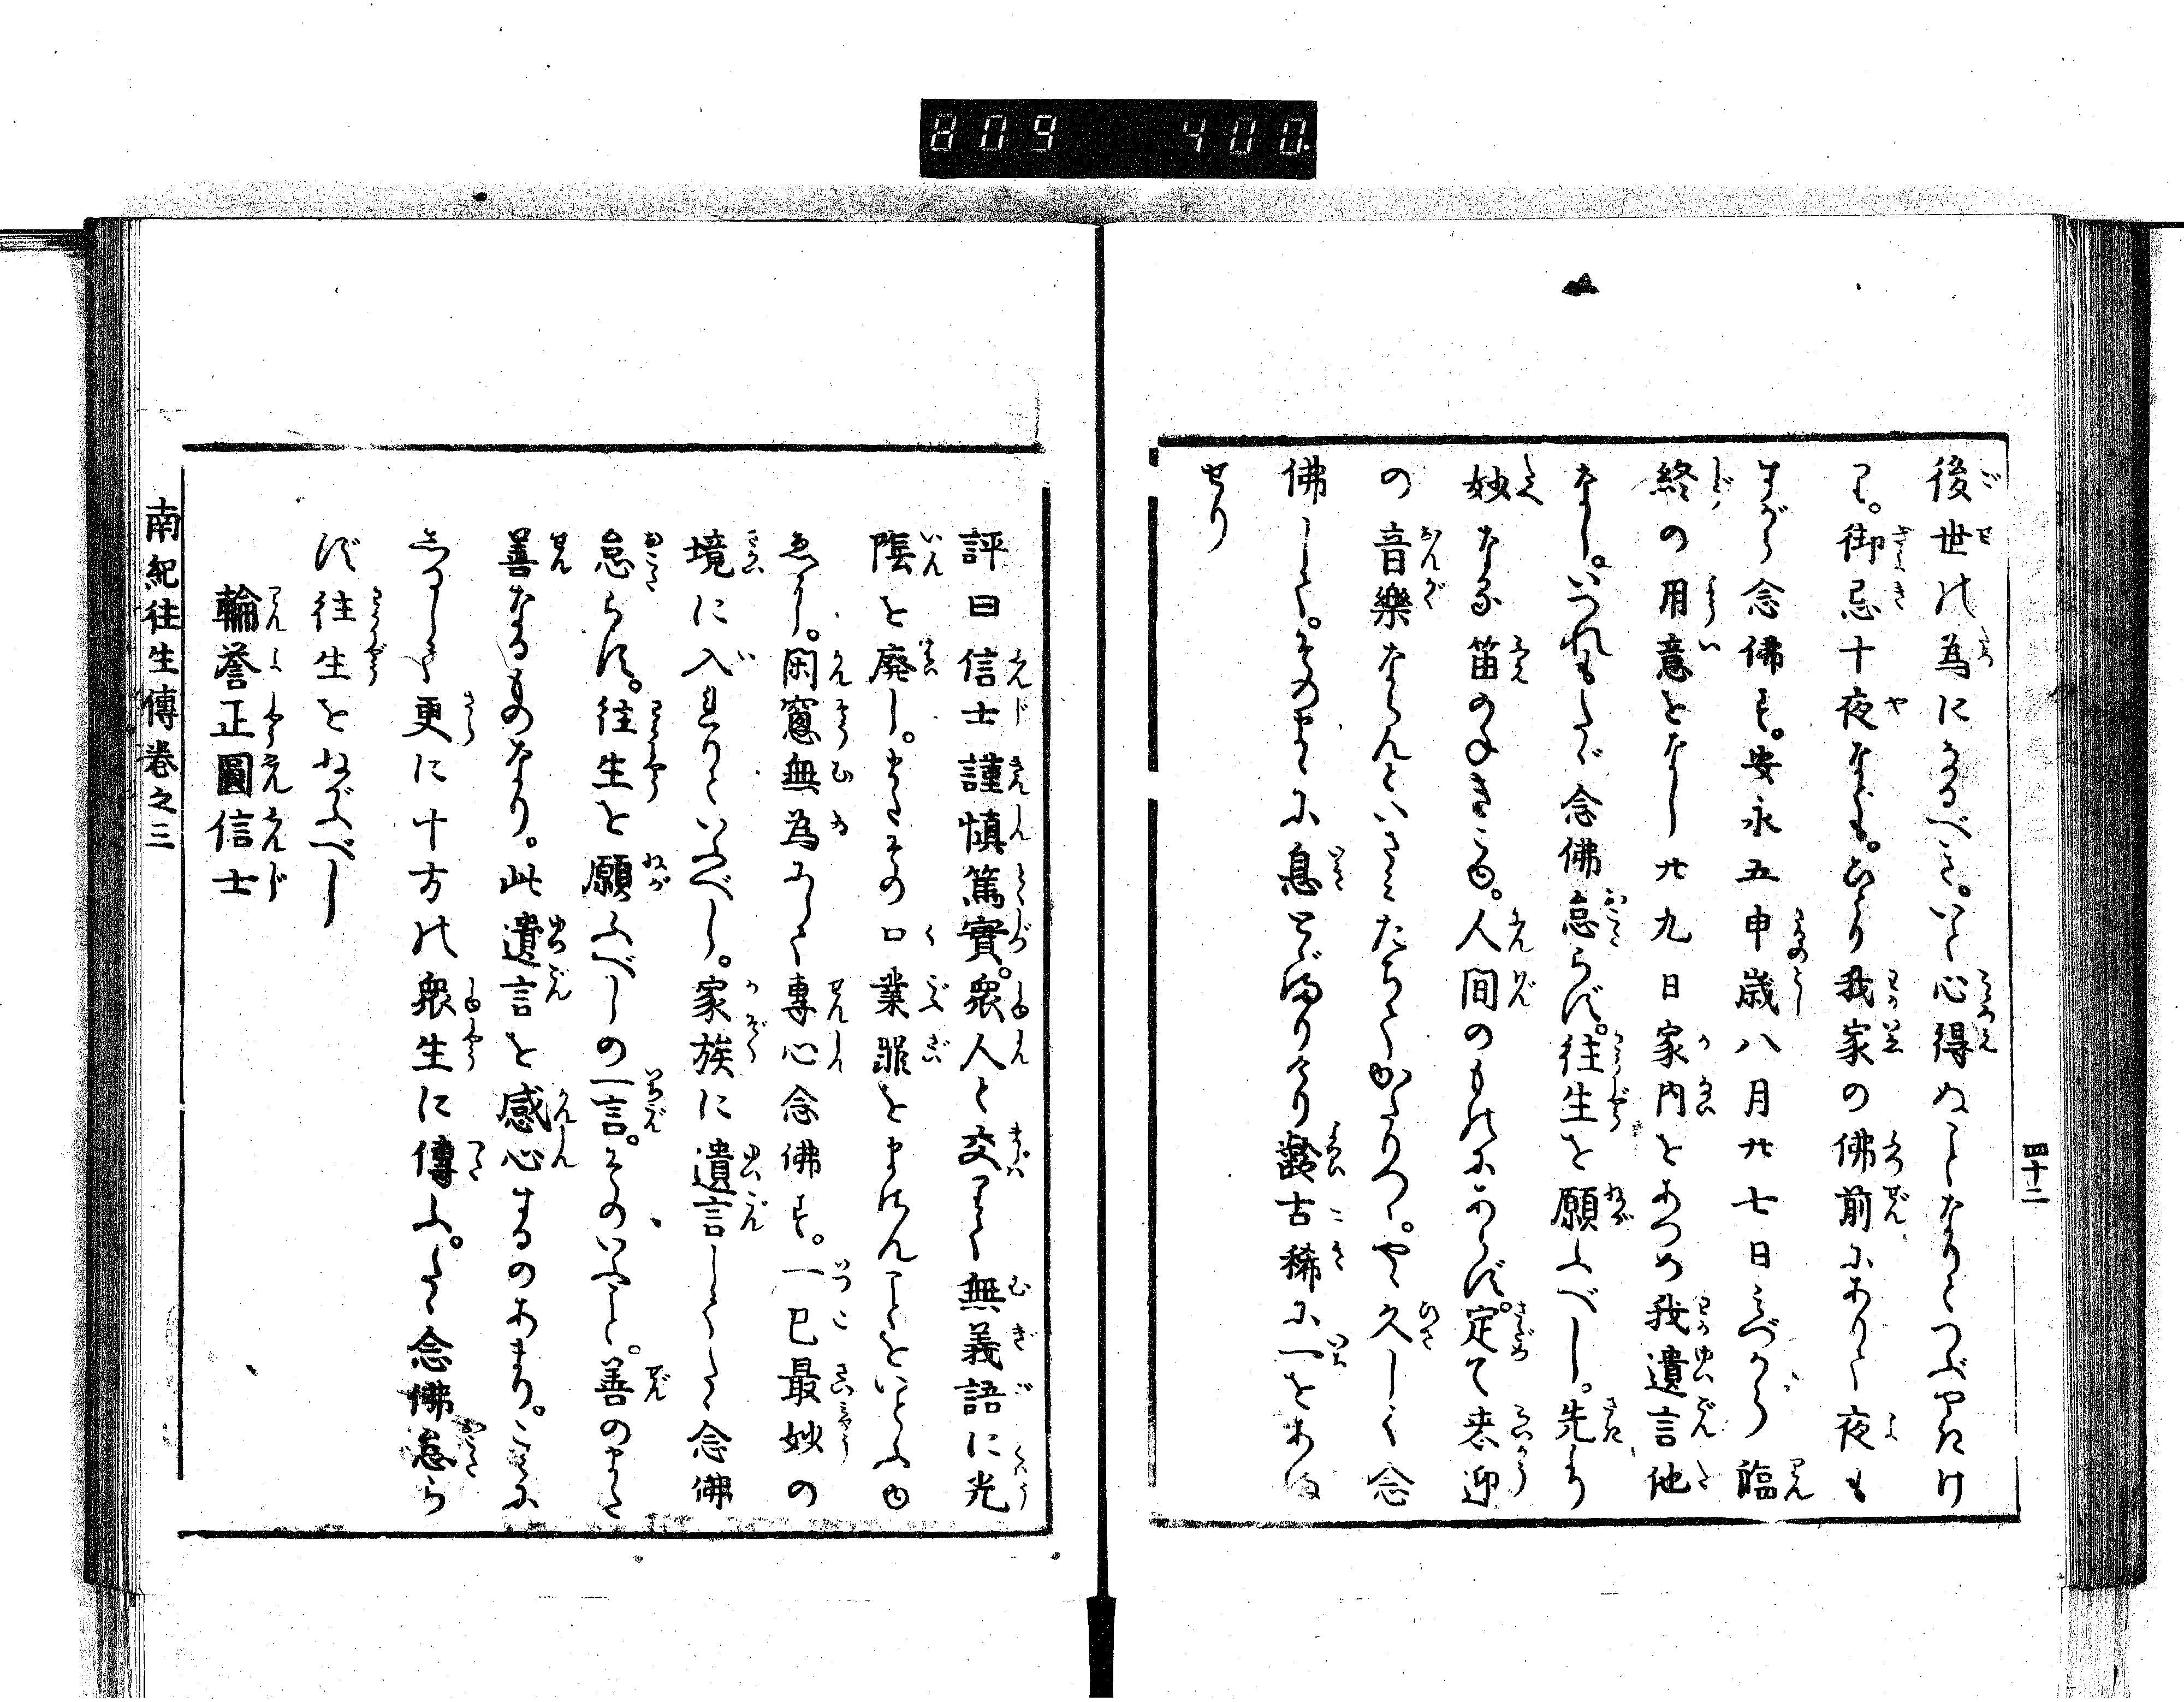 809 400.
四十二
後世の為になるべき。いと心得ぬことなりとつぶやきけ
り。御忌十夜なども。ひとり我家の佛前にありて夜も
すがら念佛す。安永五申歳八月廿七日みづから臨
終の用意をなし廿九日家内をあつめ我遺言他
なし。いづれもたゞ念佛怠らず。往生を願ふべし。先より
妙なる笛の手きこゆ。人間のものにあらず。定て来迎
の音樂ならんといさみたちてかたりつ。やゝ久しく念
佛して。そのまゝに息とゞまりけり齢古稀に一をあま
せり
評曰信士謹慎篤實。衆人と交りて無義語に光
陰を廢し。またその口業罪をまねんことをいとふゆ
ゑなり。閑窓無為にして專心念佛す。一己最妙の
境に入れりといふべし。家族に遺言してたゝ念佛
怠らず。往生を願ふべしの一言。そのいふこと。善のまた
善なるものなり。此遺言を感心するのあまり。こゝに
しるして更に十方の衆生に傳ふ。たゝ念佛怠ら
ず往生をねがふべし
輪誉正圓信士
南紀往生傳巻之三